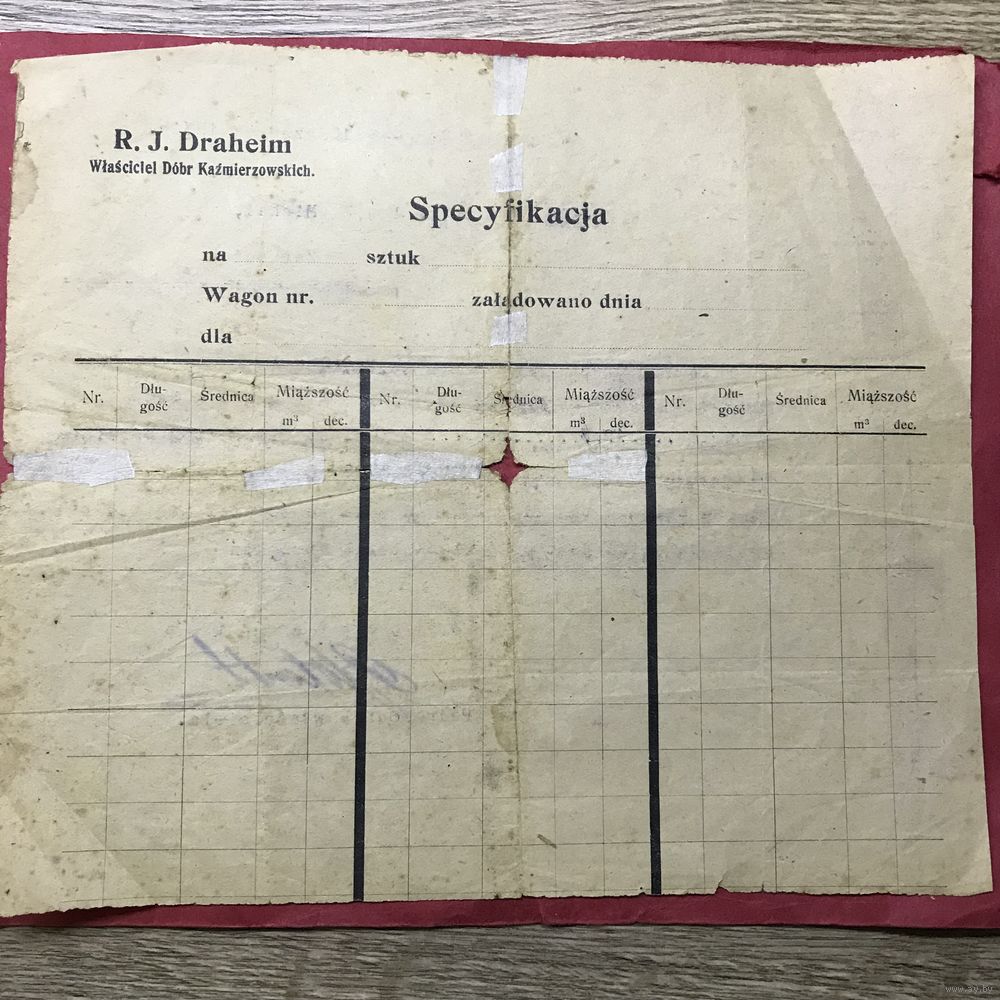 R. J. Draheim
Właściciel Dóbr Kaźmierzowskich.
Specyfikacja
na sztuk
Wagon nr. załadowano dnia
dla
Nr. Dłu-gość Średnica Miąższość m³ dec. Nr. Dłu-gość Średnica Miąższość m³ dec. Nr. Dłu-gość Średnica Miąższość m³ dec.
www.ay.by